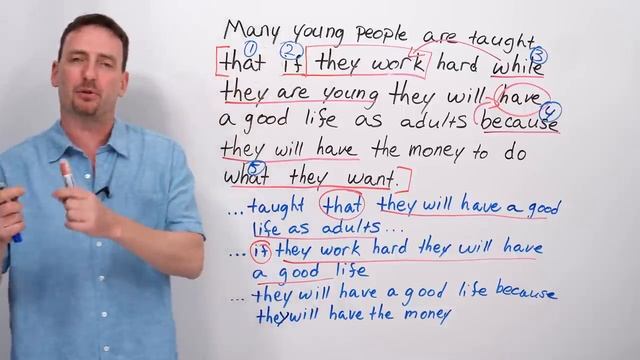 Many young people are taught
that if they work hard while
they are young they will have
a good life as adults because
they will have the money to do
what they want.
...taught that they will have a good
life as adults...
...if they work hard they will have
a good life
...they will have a good life because
they will have the money